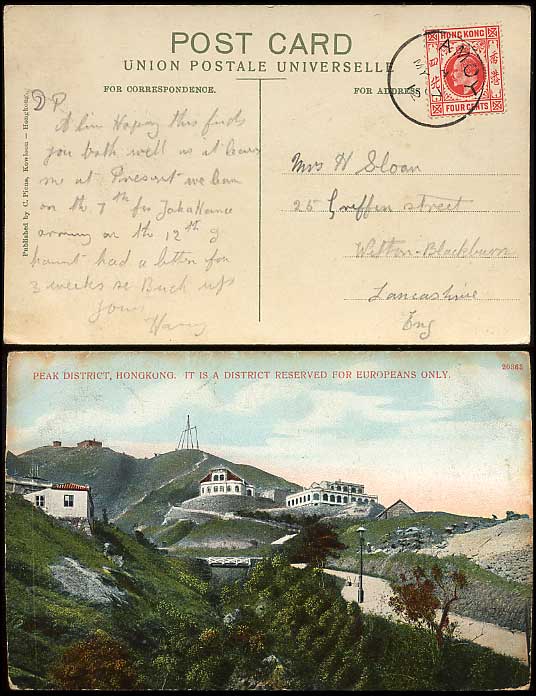 POST CARD
UNION POSTALE UNIVERSELLE
FOR CORRESPONDENCE.
FOR ADDRESS
HONG KONG
香港
四
FOUR CENTS
AMOY
MY
07
Published by C. Pirna, Kowloon — Hongkong.
D P.
A line Hoping this finds
you both well as it leaves
me at Present we leave
on the 7th for
on the 12th
had a letter for
3 weeks so Buck up
Yours
Harry
Mrs H Sloan
25 Griffin street
Witton-Blackburn
Lancashire
Eng
PEAK DISTRICT, HONGKONG. IT IS A DISTRICT RESERVED FOR EUROPEANS ONLY.
20863